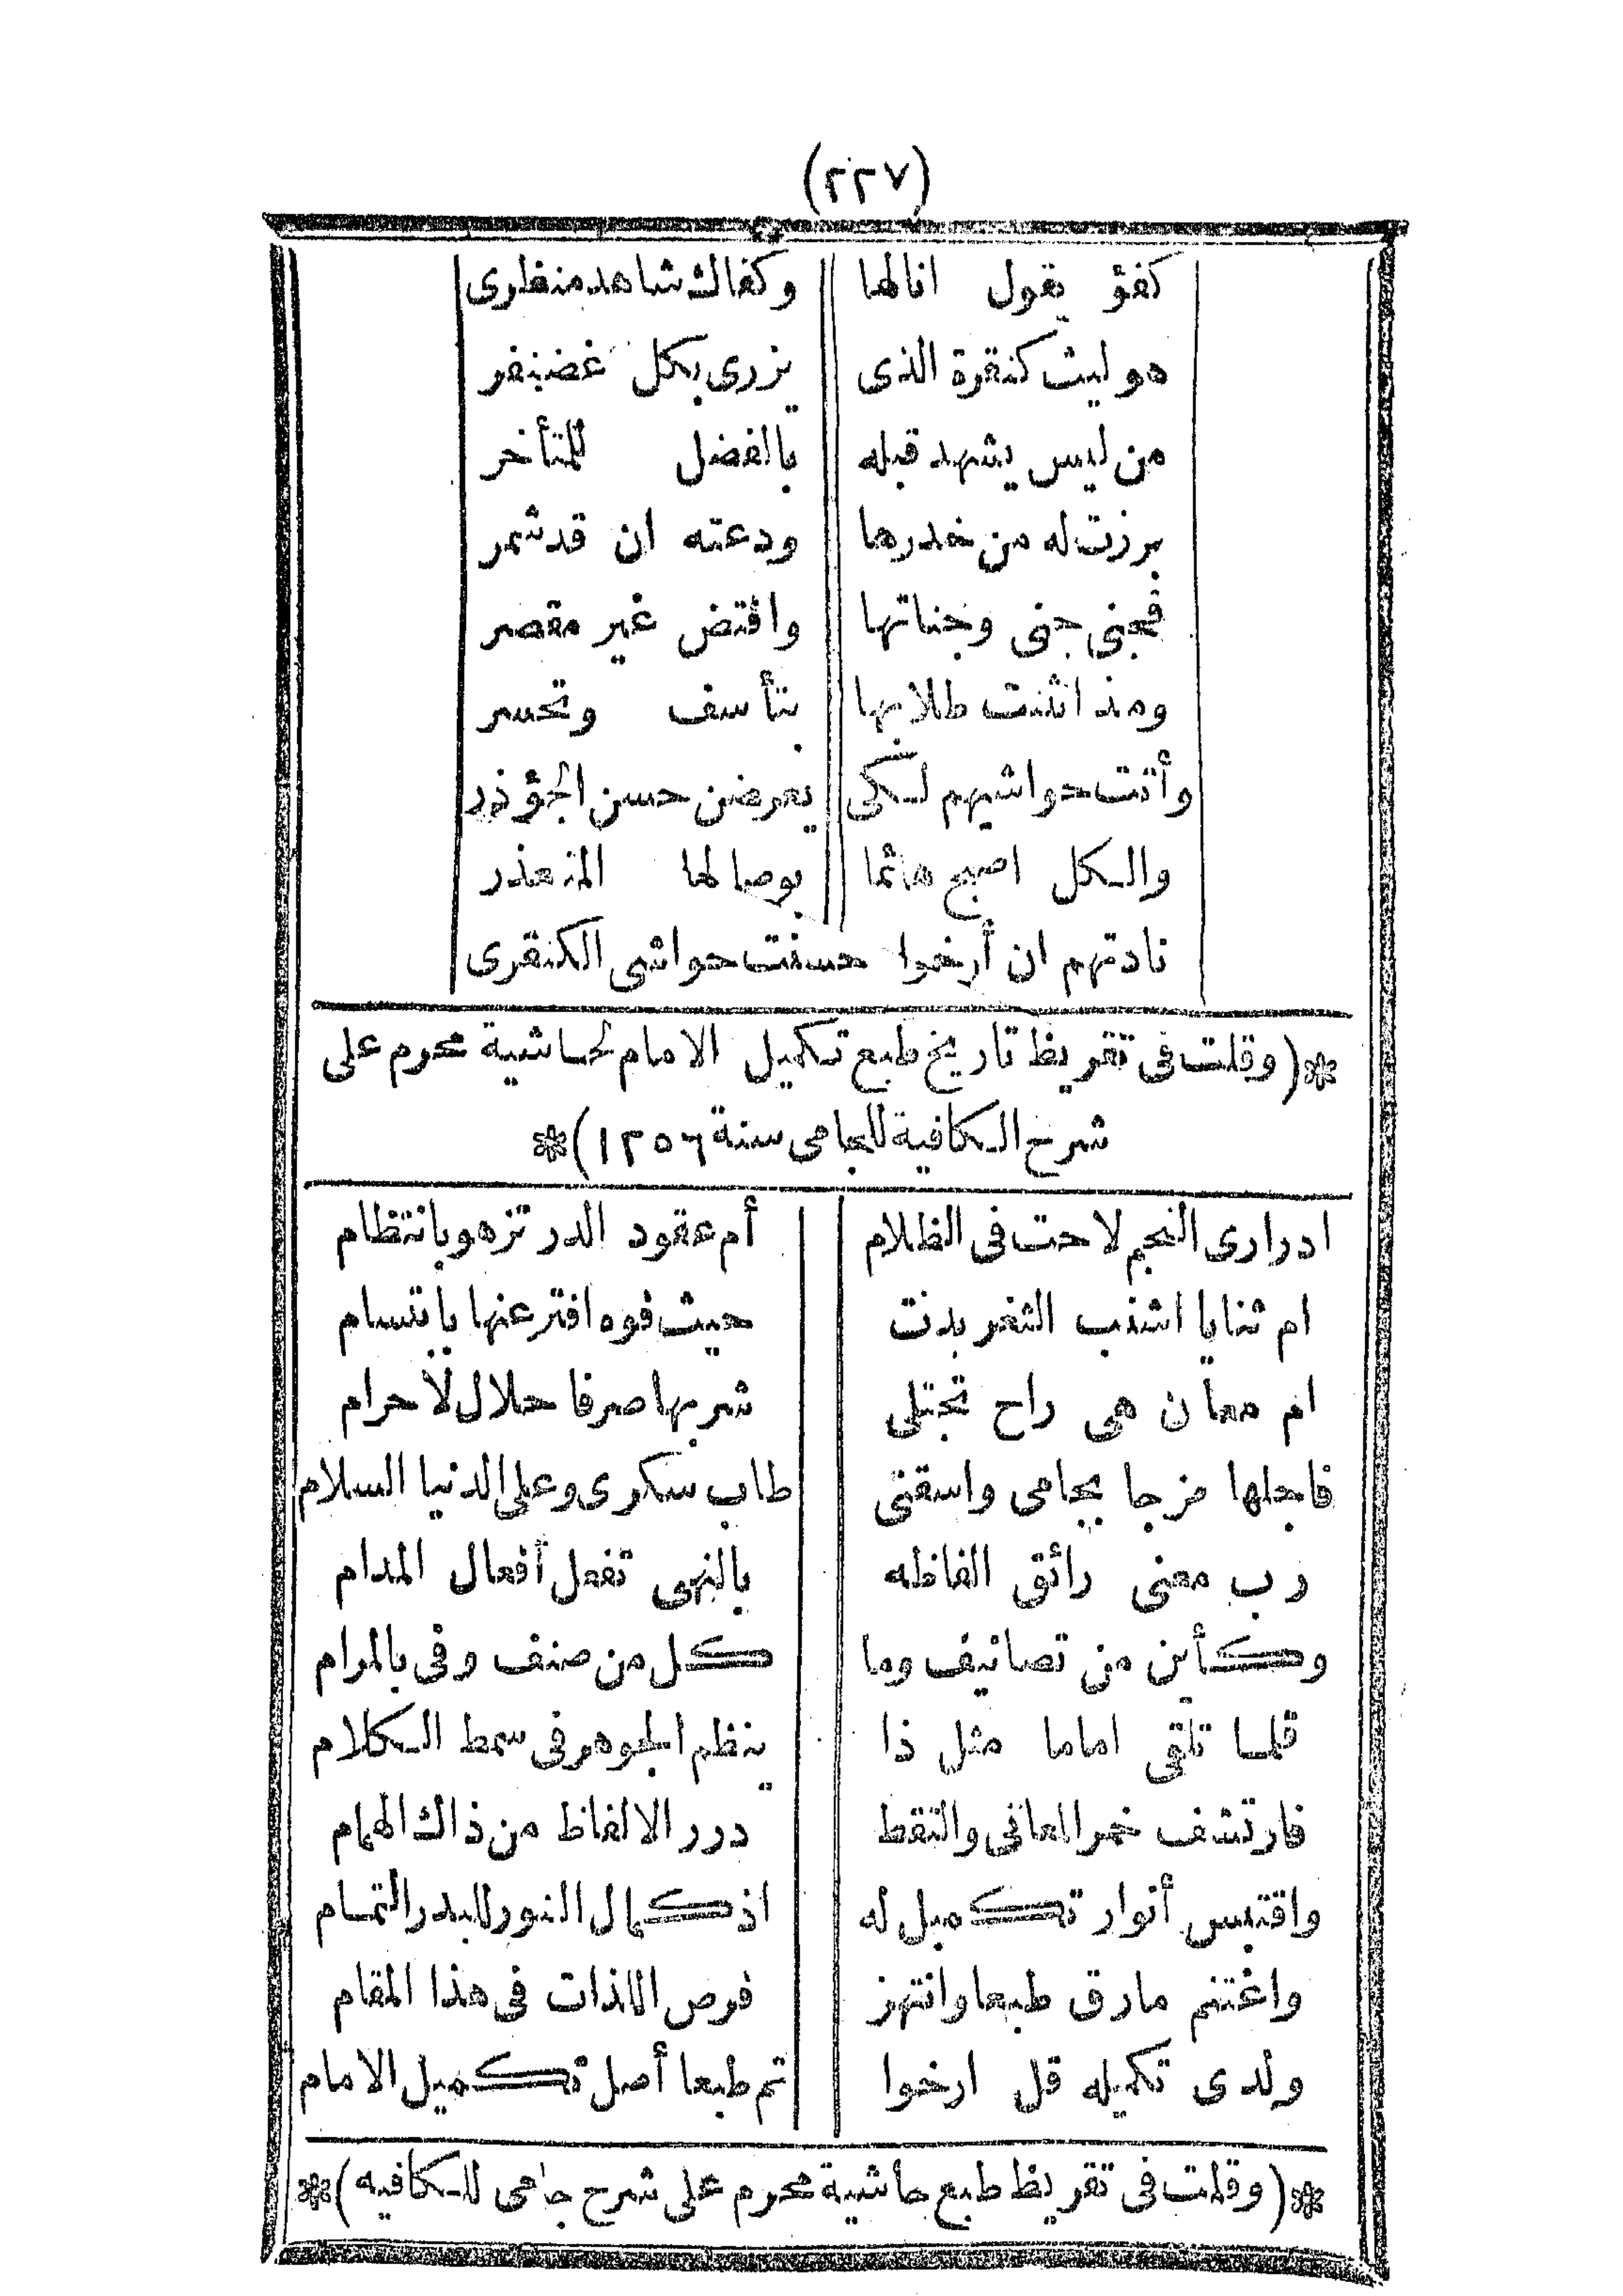 (٢٢٧)
كفؤ يقول انالها وكفاك شاهد منظرى
هو ليث كنقرة الذى يزرى بكل غضنفر
من ليس يشهد قبله بالفضل للمتأخر
برزت له من خدرها ودعته ان قد شمر
فجنى جنى وجناتها وافتض غير مقصر
ومذ انثنت طلابها بتأسف وتحسر
وأتت حواشيهم لكى يعرضن حسن الجؤذر
والكل اصبح هائما بوصالها المتعذر
نادتهم ان أرخوا حسنت حواشى الكنقرى
*(وقلت فى تقريظ تاريخ طبع تكميل الامام لحاشية محرم على
شرح الكافية للجامى سنة ١٢٥٦)*
ادرارى النجم لاحت فى الظلام أم عقود الدر تزهو بانتظام
ام ثنايا اشنب الثغر بدت حيث فوه افتر عنها بابتسام
ام معان هى راح تجتلى شربها صرفا حلال لا حرام
فاجلها مزجا بجامى واسقنى طاب سكرى وعلى الدنيا السلام
رب معنى رائق الفاظه بالنهى تفعل أفعال المدام
وكأين من تصانيف وما كل من صنف وفى بالمرام
قلما تلقى اماما مثل ذا ينظم الجوهر فى سمط الكلام
فارتشف خمر المعانى والتقط درر الالفاظ من ذاك الهمام
واقتبس أنوار تكميل له اذ كمال النور للبدر التمام
واغتنم مارق طبعا وانتهز فرص اللذات فى هذا المقام
ولدى تكميله قل ارخوا تم طبعا أصل تكميل الامام
*(وقلت فى تقريظ طبع حاشية محرم على شرح جامى للكافيه)*